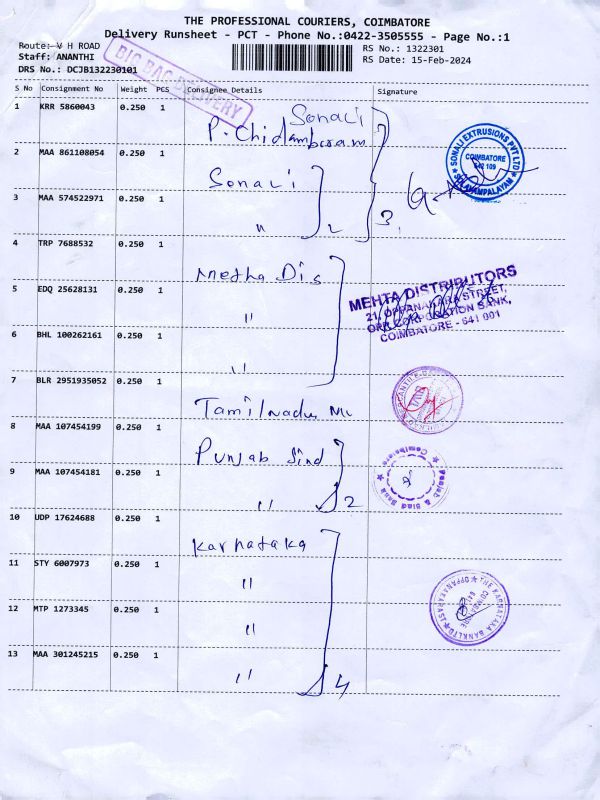 THE PROFESSIONAL COURIERS, COIMBATORE
Delivery Runsheet - PCT - Phone No.:0422-3505555 - Page No.:1
Route: V H ROAD
Staff: ANANTHI
DRS No.: DCJB132230101
RS No.: 1322301
RS Date: 15-Feb-2024
S No Consignment No Weight PCS Consignee Details Signature
1 KRR 5860043 0.250 1 Sonali
P. Chidambaram
2 MAA 861108054 0.250 1 Sonali
3 MAA 574522971 0.250 1 " 2 3
4 TRP 7688532 0.250 1 Metha Dis
5 EDQ 25628131 0.250 1 "
6 BHL 100262161 0.250 1 "
7 BLR 2951935052 0.250 1 Tamilnadu M
8 MAA 107454199 0.250 1 Punjab Sind
9 MAA 107454181 0.250 1 " 2
10 UDP 17624688 0.250 1 Karnataka
11 STY 6007973 0.250 1 "
12 MTP 1273345 0.250 1 "
13 MAA 301245215 0.250 1 " 4
DELIVERY
SONALI EXTRUSIONS PVT LTD
COIMBATORE
641 109
MEHTA DISTRIBUTORS
21, OPPANAKARA STREET,
OPP. CORPORATION BANK,
COIMBATORE - 641 001
TMB
Punjab & Sind Bank
Coimbatore
THE KARNATAKA BANK LTD
COIMBATORE